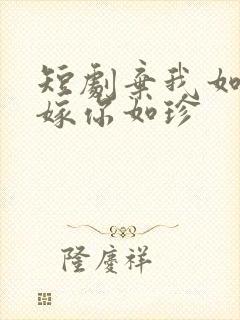 短劇棄我如
嫁你如珍
隆慶祥